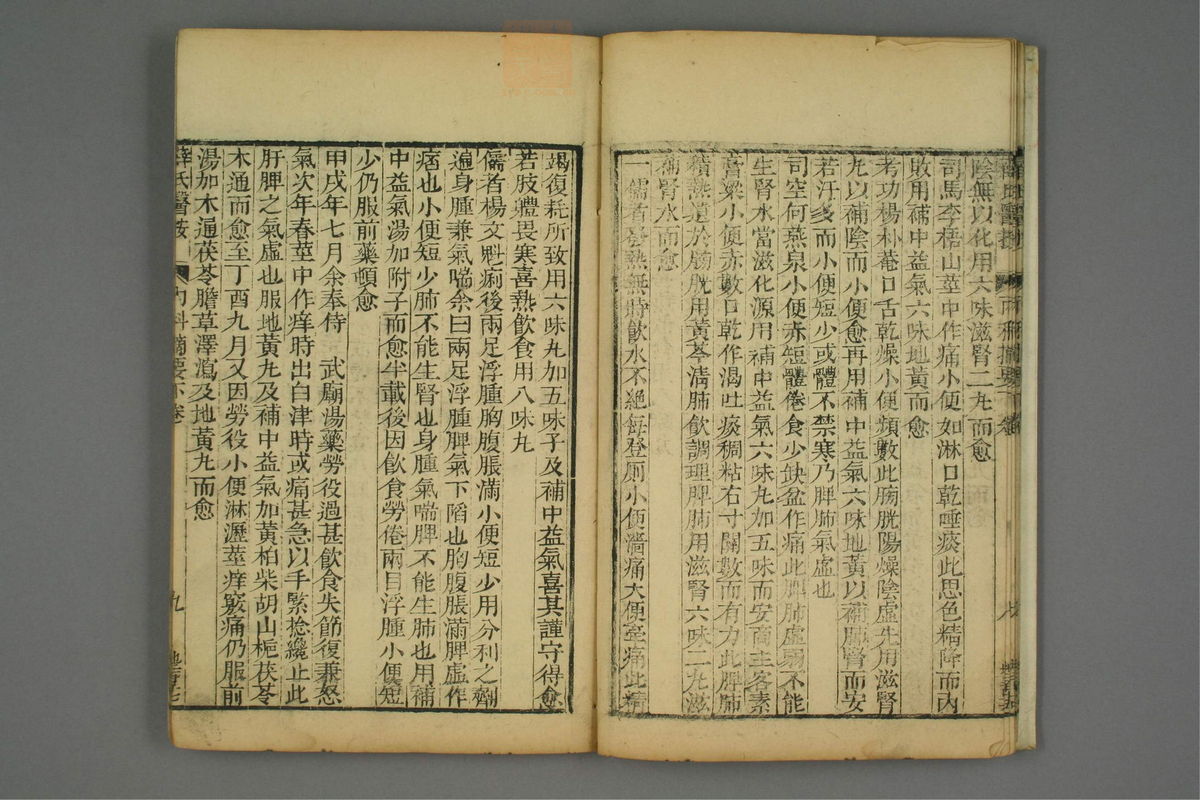 陰無以化用六味滋腎二丸而愈
司馬李梧山莖中作痛小便如淋口乾唾痰此思色精降而內
敗用補中益氣六味地黃而愈
考功楊朴菴口舌乾燥小便頻數此膀胱陽燥陰虛先用滋腎
丸以補陰而小便愈再用補中益氣六味地黃以補肺腎而安
若汗多而小便短少或體不禁寒乃脾肺氣虛也
司空何燕泉小便赤短體倦食少缺盆作痛此脾肺虛弱不能
生腎水當滋化源用補中益氣六味丸加五味而安商主客素
膏粱小便赤數口乾作渴吐痰稠粘右寸關數而有力此脾肺
積熱遺於膀胱用黃芩清肺飲調理脾肺用滋腎六味二丸滋
補腎水而愈
一儒者發熱無時飲水不絕每登厠小便濇痛大便牽痛此精
竭復耗所致用六味丸加五味子及補中益氣喜其謹守得愈
若肢體畏寒喜熱飲食用八味丸
儒者楊文魁痢後兩足浮腫胸腹脹滿小便短少用分利之劑
遍身腫兼氣喘余曰兩足浮腫脾氣下陷也胸腹脹滿脾虛作
痞也小便短少肺不能生腎也身腫氣喘脾不能生肺也用補
中益氣湯加附子而愈半載後因飲食勞倦兩目浮腫小便短
少仍服前藥頓愈
甲戌年七月余奉侍 武廟湯藥勞役過甚飲食失節復兼怒
氣次年春莖中作痒時出白津時或痛甚急以手緊捻纔止此
肝脾之氣虛也服地黃丸及補中益氣加黃柏柴胡山梔茯苓
木通而愈至丁酉九月又因勞役小便淋瀝莖痒竅痛仍服前
湯加木通茯苓膽草澤瀉及地黃丸而愈
薛氏醫按 內科摘要下卷 九